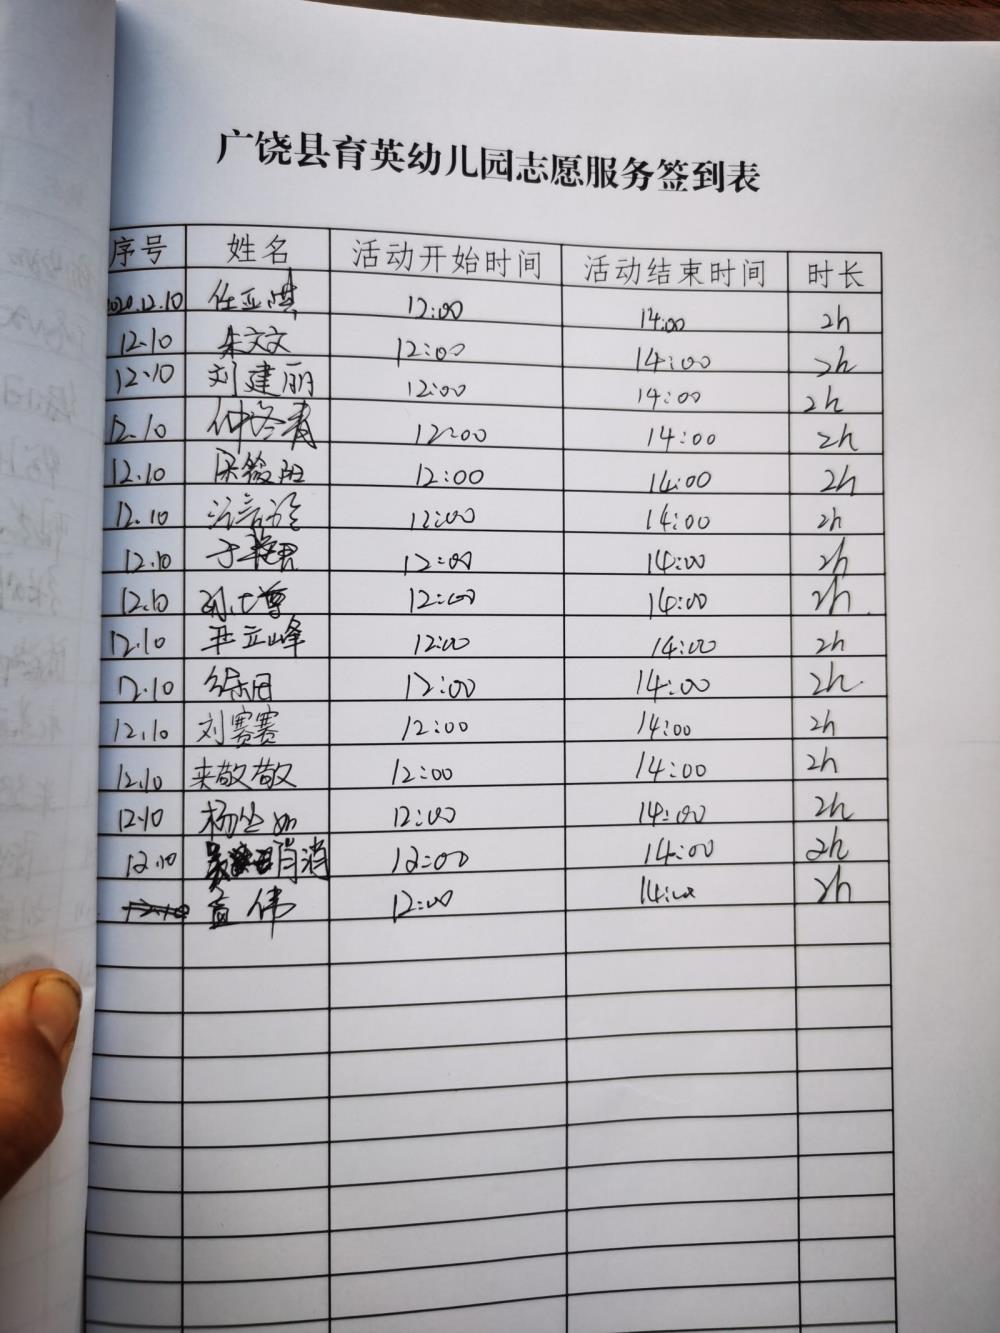 广饶县育英幼儿园志愿服务签到表
序号 姓名 活动开始时间 活动结束时间 时长
2020.12.10 任亚琪 12:00 14:00 2h
12.10 朱文文 12:00 14:00 2h
12.10 刘建丽 12:00 14:00 2h
12.10 仲冬青 12:00 14:00 2h
12.10 12:00 14:00 2h
12.10 12:00 14:00 2h
12.10 于艳君 12:00 14:00 2h
12.10 12:00 14:00 2h
12.10 王立峰 12:00 14:00 2h
12.10 徐田 12:00 14:00 2h
12.10 刘赛赛 12:00 14:00 2h
12.10 来敬敬 12:00 14:00 2h
12.10 杨丛如 12:00 14:00 2h
12.10 肖消 12:00 14:00 2h
12.10 伟 12:00 14:00 2h